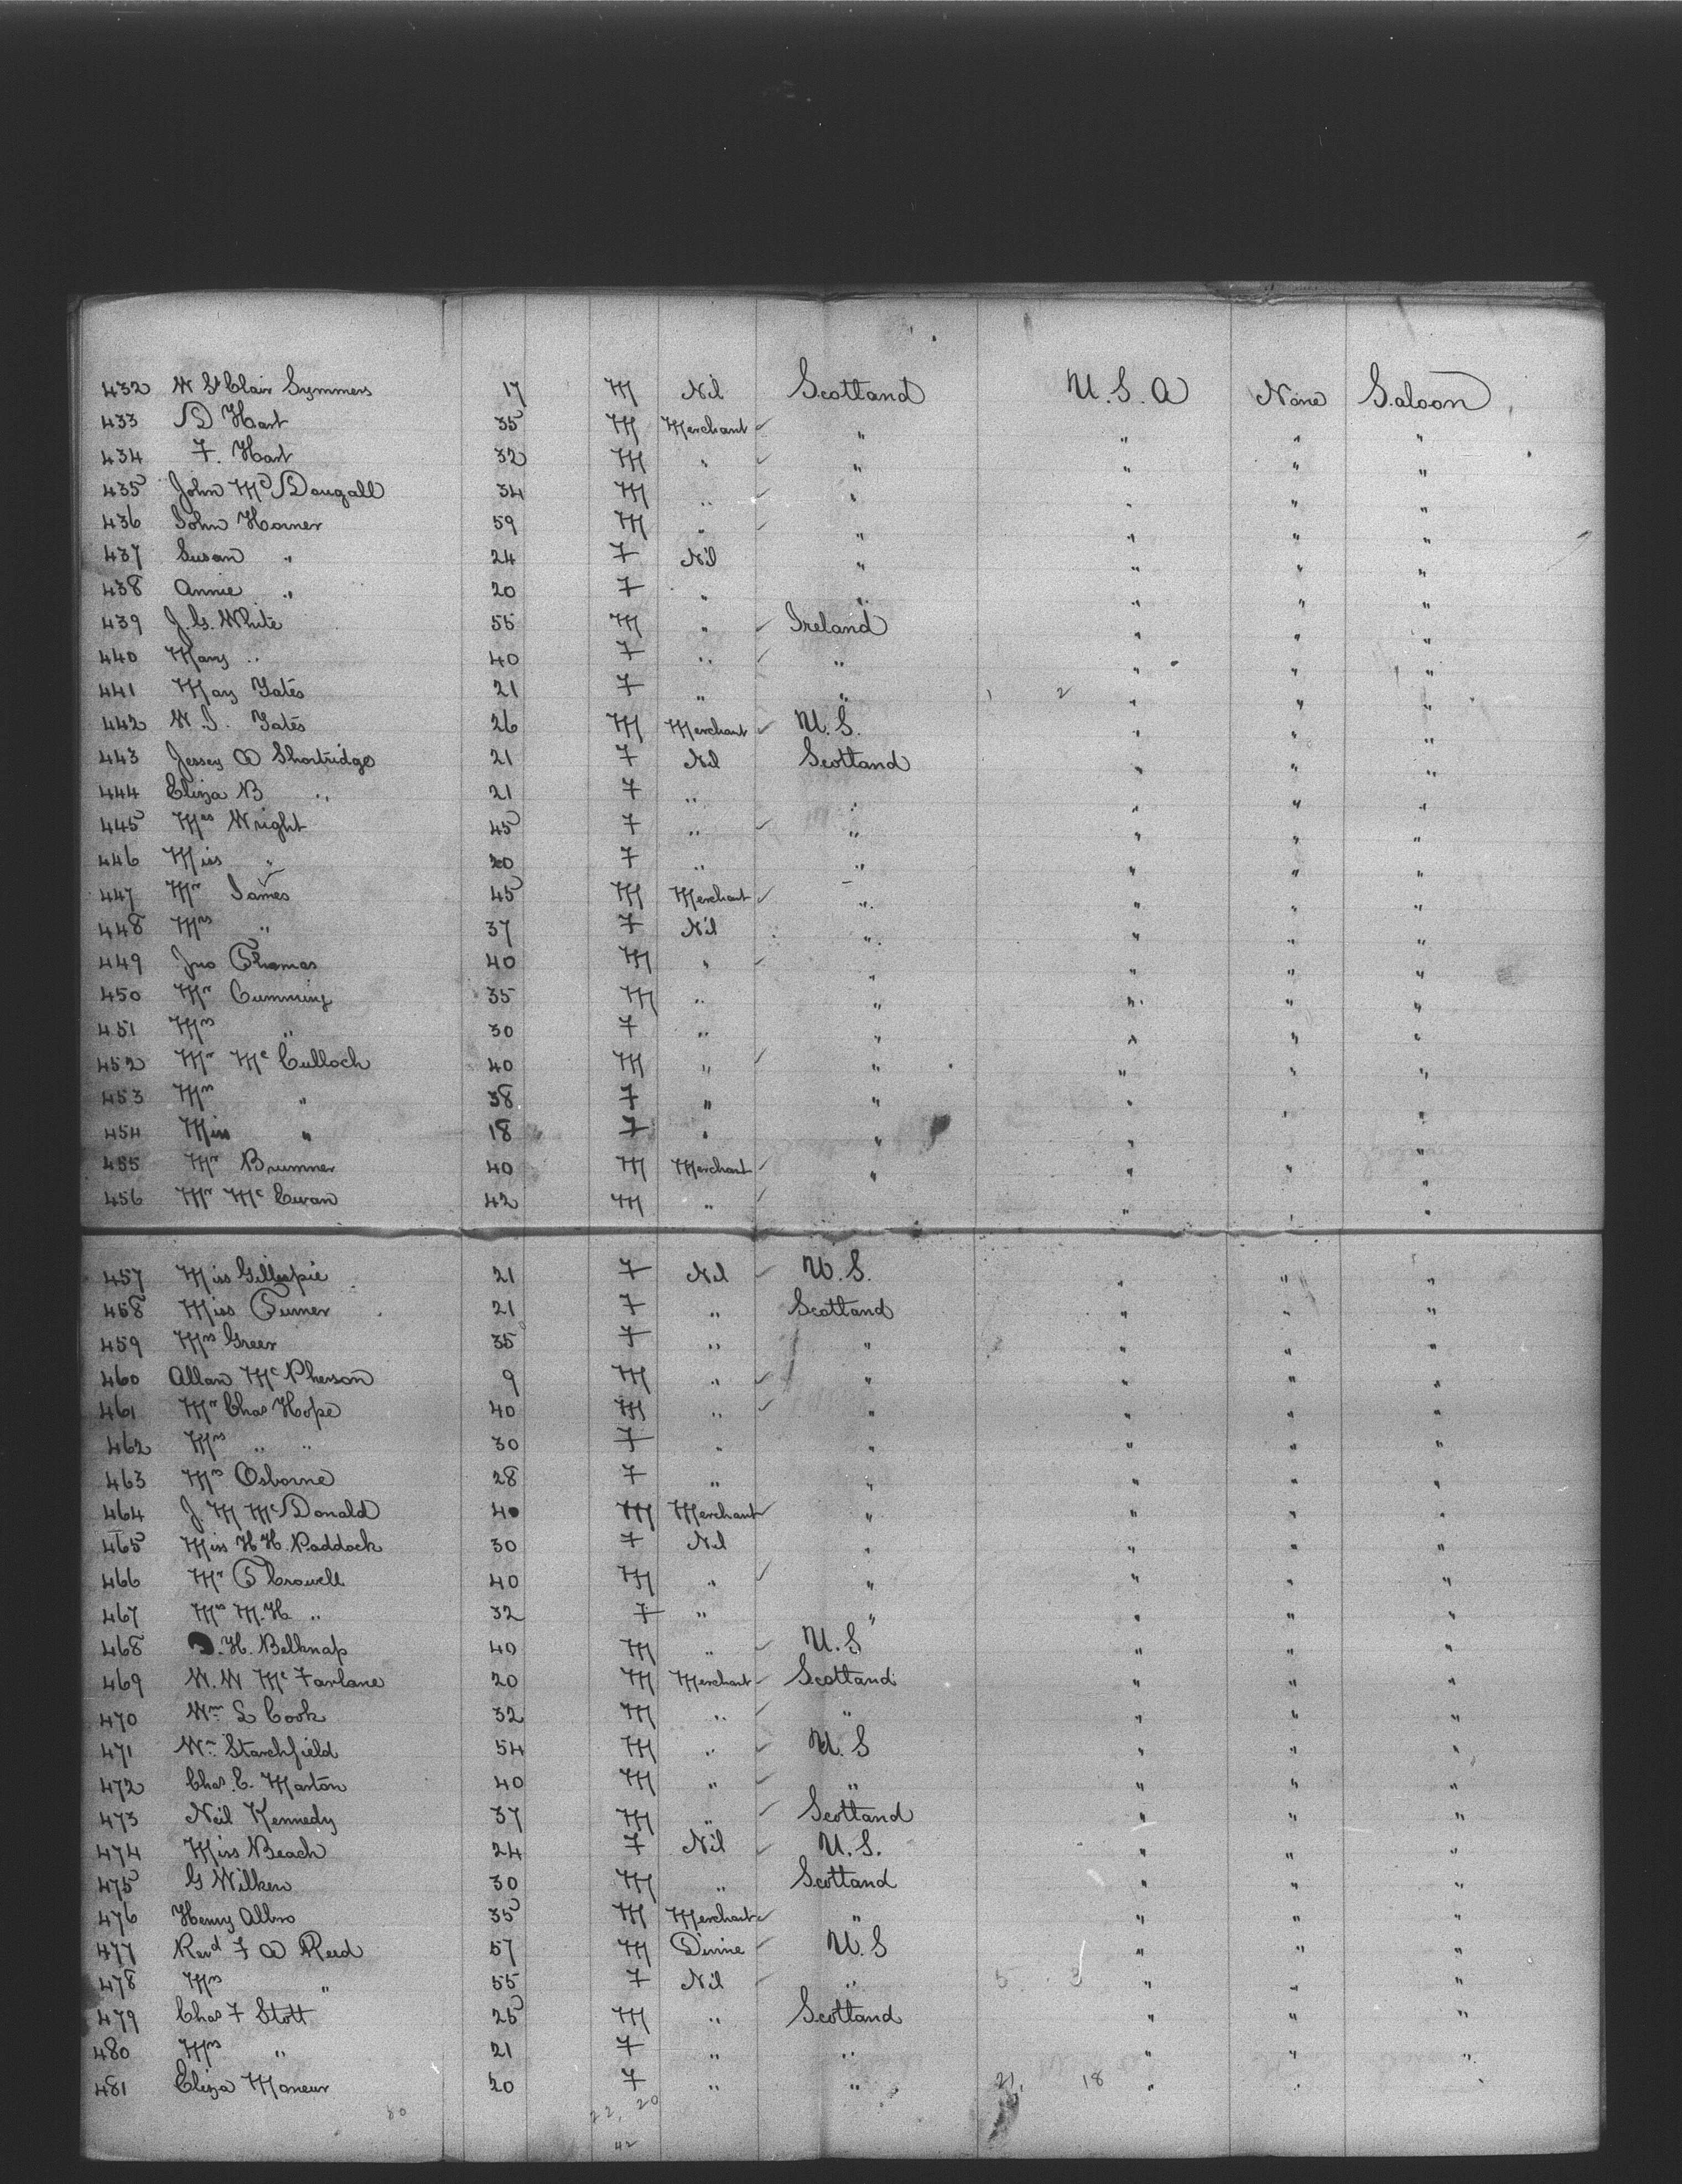 432 W St Clair Symmers 17 M Nil Scotland U.S.A None Saloon
433 D Hart 35 M Merchant " " " "
434 F. Hart 32 M " " " " "
435 John McDougall 34 M " " " " "
436 John Horner 59 M " " " " "
437 Susan " 24 F Nil " " " "
438 Annie " 20 F " " " " "
439 J.G. White 55 M " Ireland " " "
440 Mary " 40 F " " " " "
441 May Yates 21 F " " 1 2 " " "
442 W. S. Yates 26 M Merchant U.S. " " "
443 Jessey A Shortridge 21 F Nil Scotland " " "
444 Eliza B " 21 F " " " " "
445 Mrs Wright 45 F " " " " "
446 Miss " 20 F " " " " "
447 Mr James 45 M Merchant " " " "
448 Mrs " 37 F Nil " " " "
449 Jno Thomas 40 M " " " " "
450 Mr Cumming 35 M " " " " "
451 Mrs " 30 F " " " " "
452 Mr McCulloch 40 M " " " " "
453 Mrs " 38 F " " " " "
454 Miss " 18 F " " " " "
455 Mr Brumner 40 M Merchant " " " "
456 Mr McEwan 42 M " " " "
457 Miss Gillespie 21 F Nil U.S. " " "
458 Miss Turner 21 F " Scotland " " "
459 Mrs Greer 35 F " " " " "
460 Allan McPherson 9 M " " " " "
461 Mr Chas Hope 40 M " " " " "
462 Mrs " " 30 F " " " " "
463 Mrs Osborne 28 F " " " " "
464 J. M McDonald 40 M Merchant " " " "
465 Miss H H. Paddock 30 F Nil " " " "
466 Mr T Crowell 40 M " " " " "
467 Mrs M.H. " 32 F " " " " "
468 H. Belknap 40 M " U.S " " "
469 W. W McFarlane 20 M Merchant Scotland " " "
470 Wm S Cook 32 M " " " " "
471 Wm Starchfield 54 M " U.S " " "
472 Chas. E. Marton 40 M " " " " "
473 Neil Kennedy 37 M " Scotland " " "
474 Miss Beach 24 F Nil U.S. " " "
475 G Wilken 30 M " Scotland " " "
476 Henry Albro 35 M Merchant " " " "
477 Revd F A Reed 57 M Divine U.S " " "
478 Mrs " 55 F Nil " 5 3 " " "
479 Chas F Stott 25 M " Scotland " " "
480 Mrs " 21 F " " " " "
481 Eliza 20 F " " 21, 18 " " "
80 22, 20
42